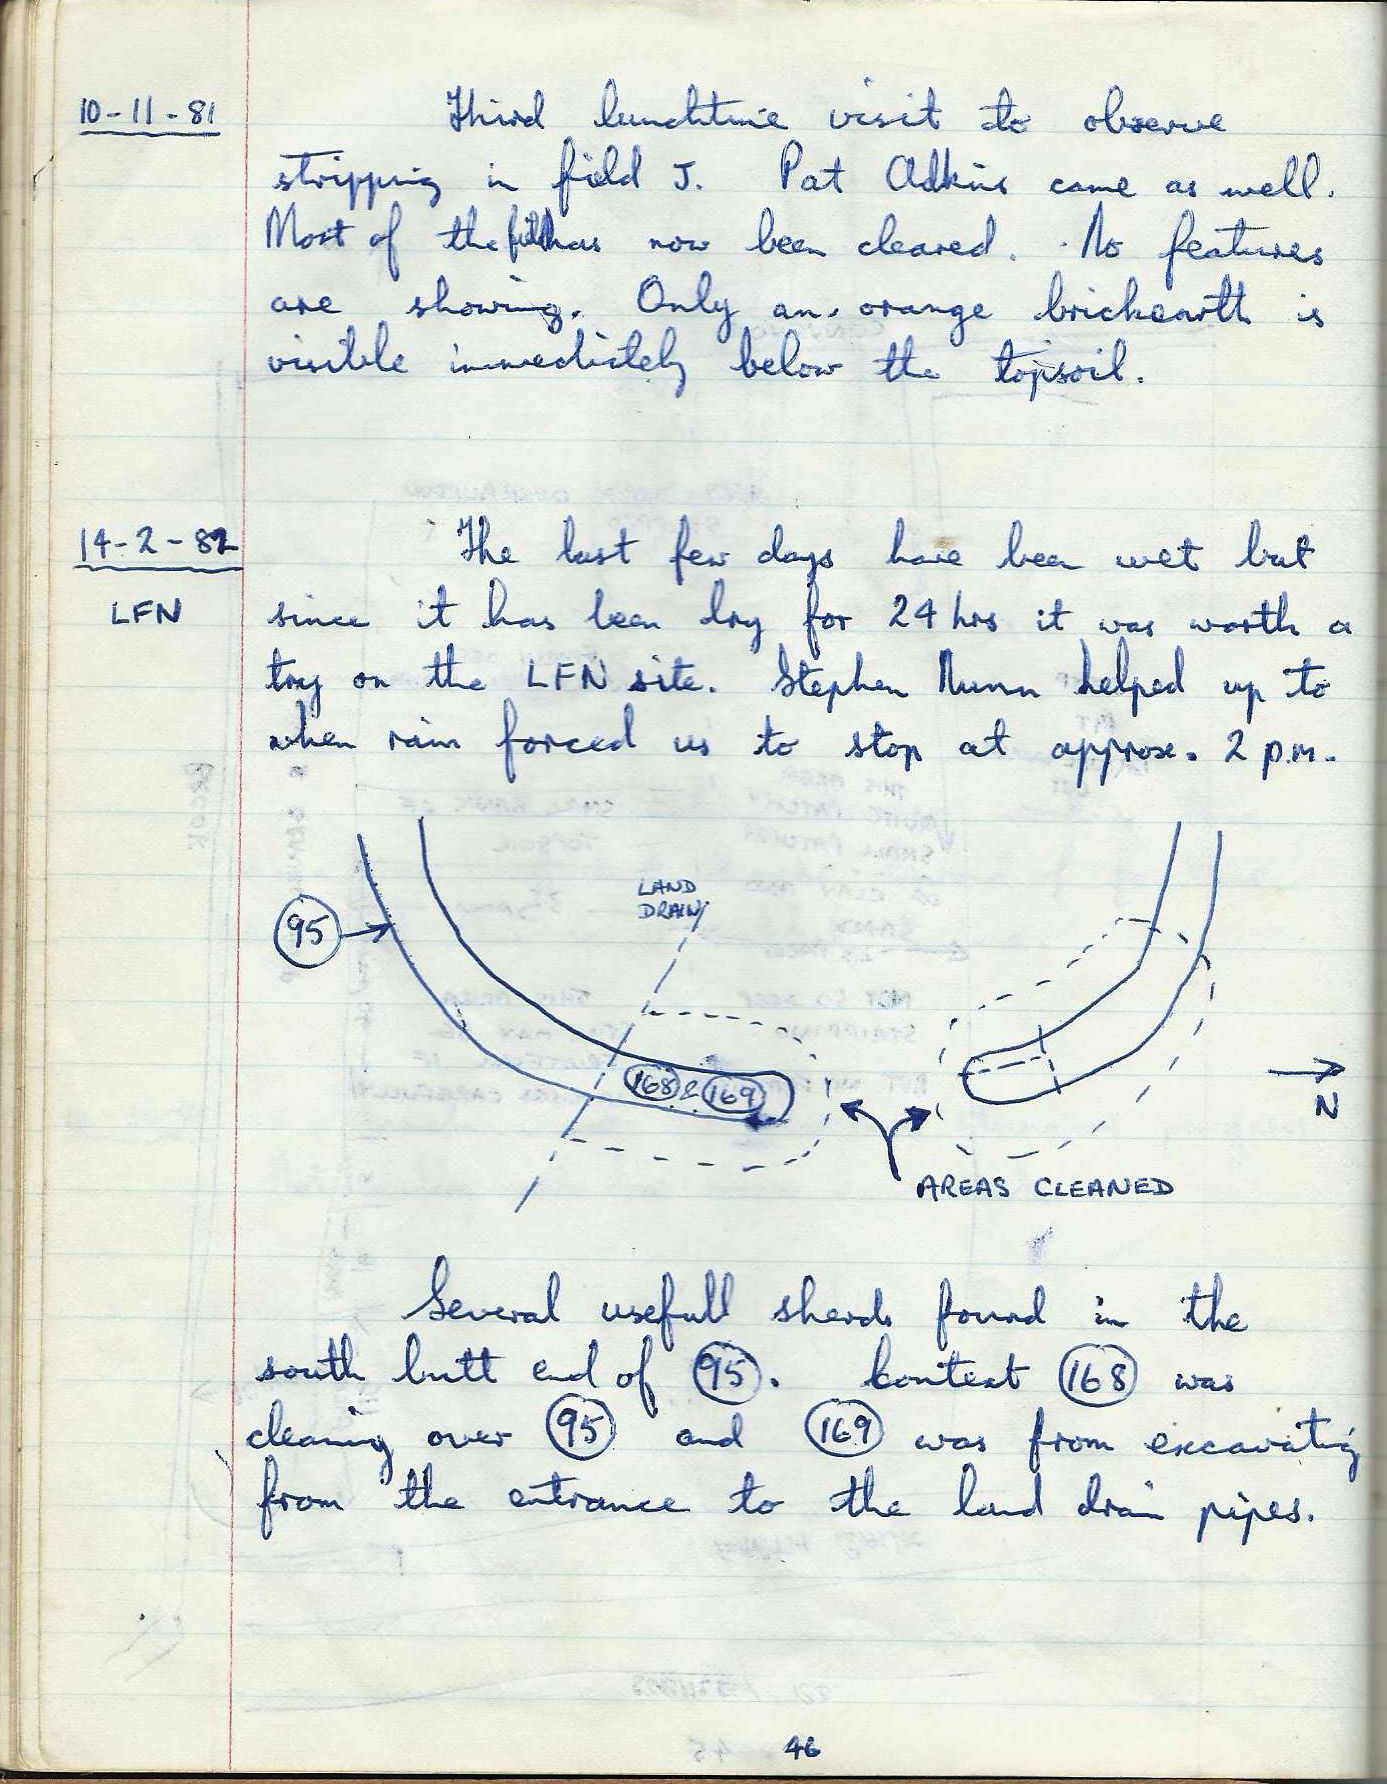 10-11-81
Third lunchtime visit to observe
stripping in field J. Pat Adkins came as well.
Most of the field has now been cleared. No features
are showing. Only an orange brickearth is
visible immediately below the topsoil.
14-2-82
LFN
The last few days have been wet but
since it has been dry for 24 hrs it was worth a
try on the LFN site. Stephen Nunn helped up to
when rain forced us to stop at approx. 2 p.m.
LAND
DRAIN
95
168 & 169
N
AREAS CLEANED
Several usefull sherds found in the
south butt end of 95. Context 168 was
cleaning over 95 and 169 was from excavating
from the entrance to the land drain pipes.
46